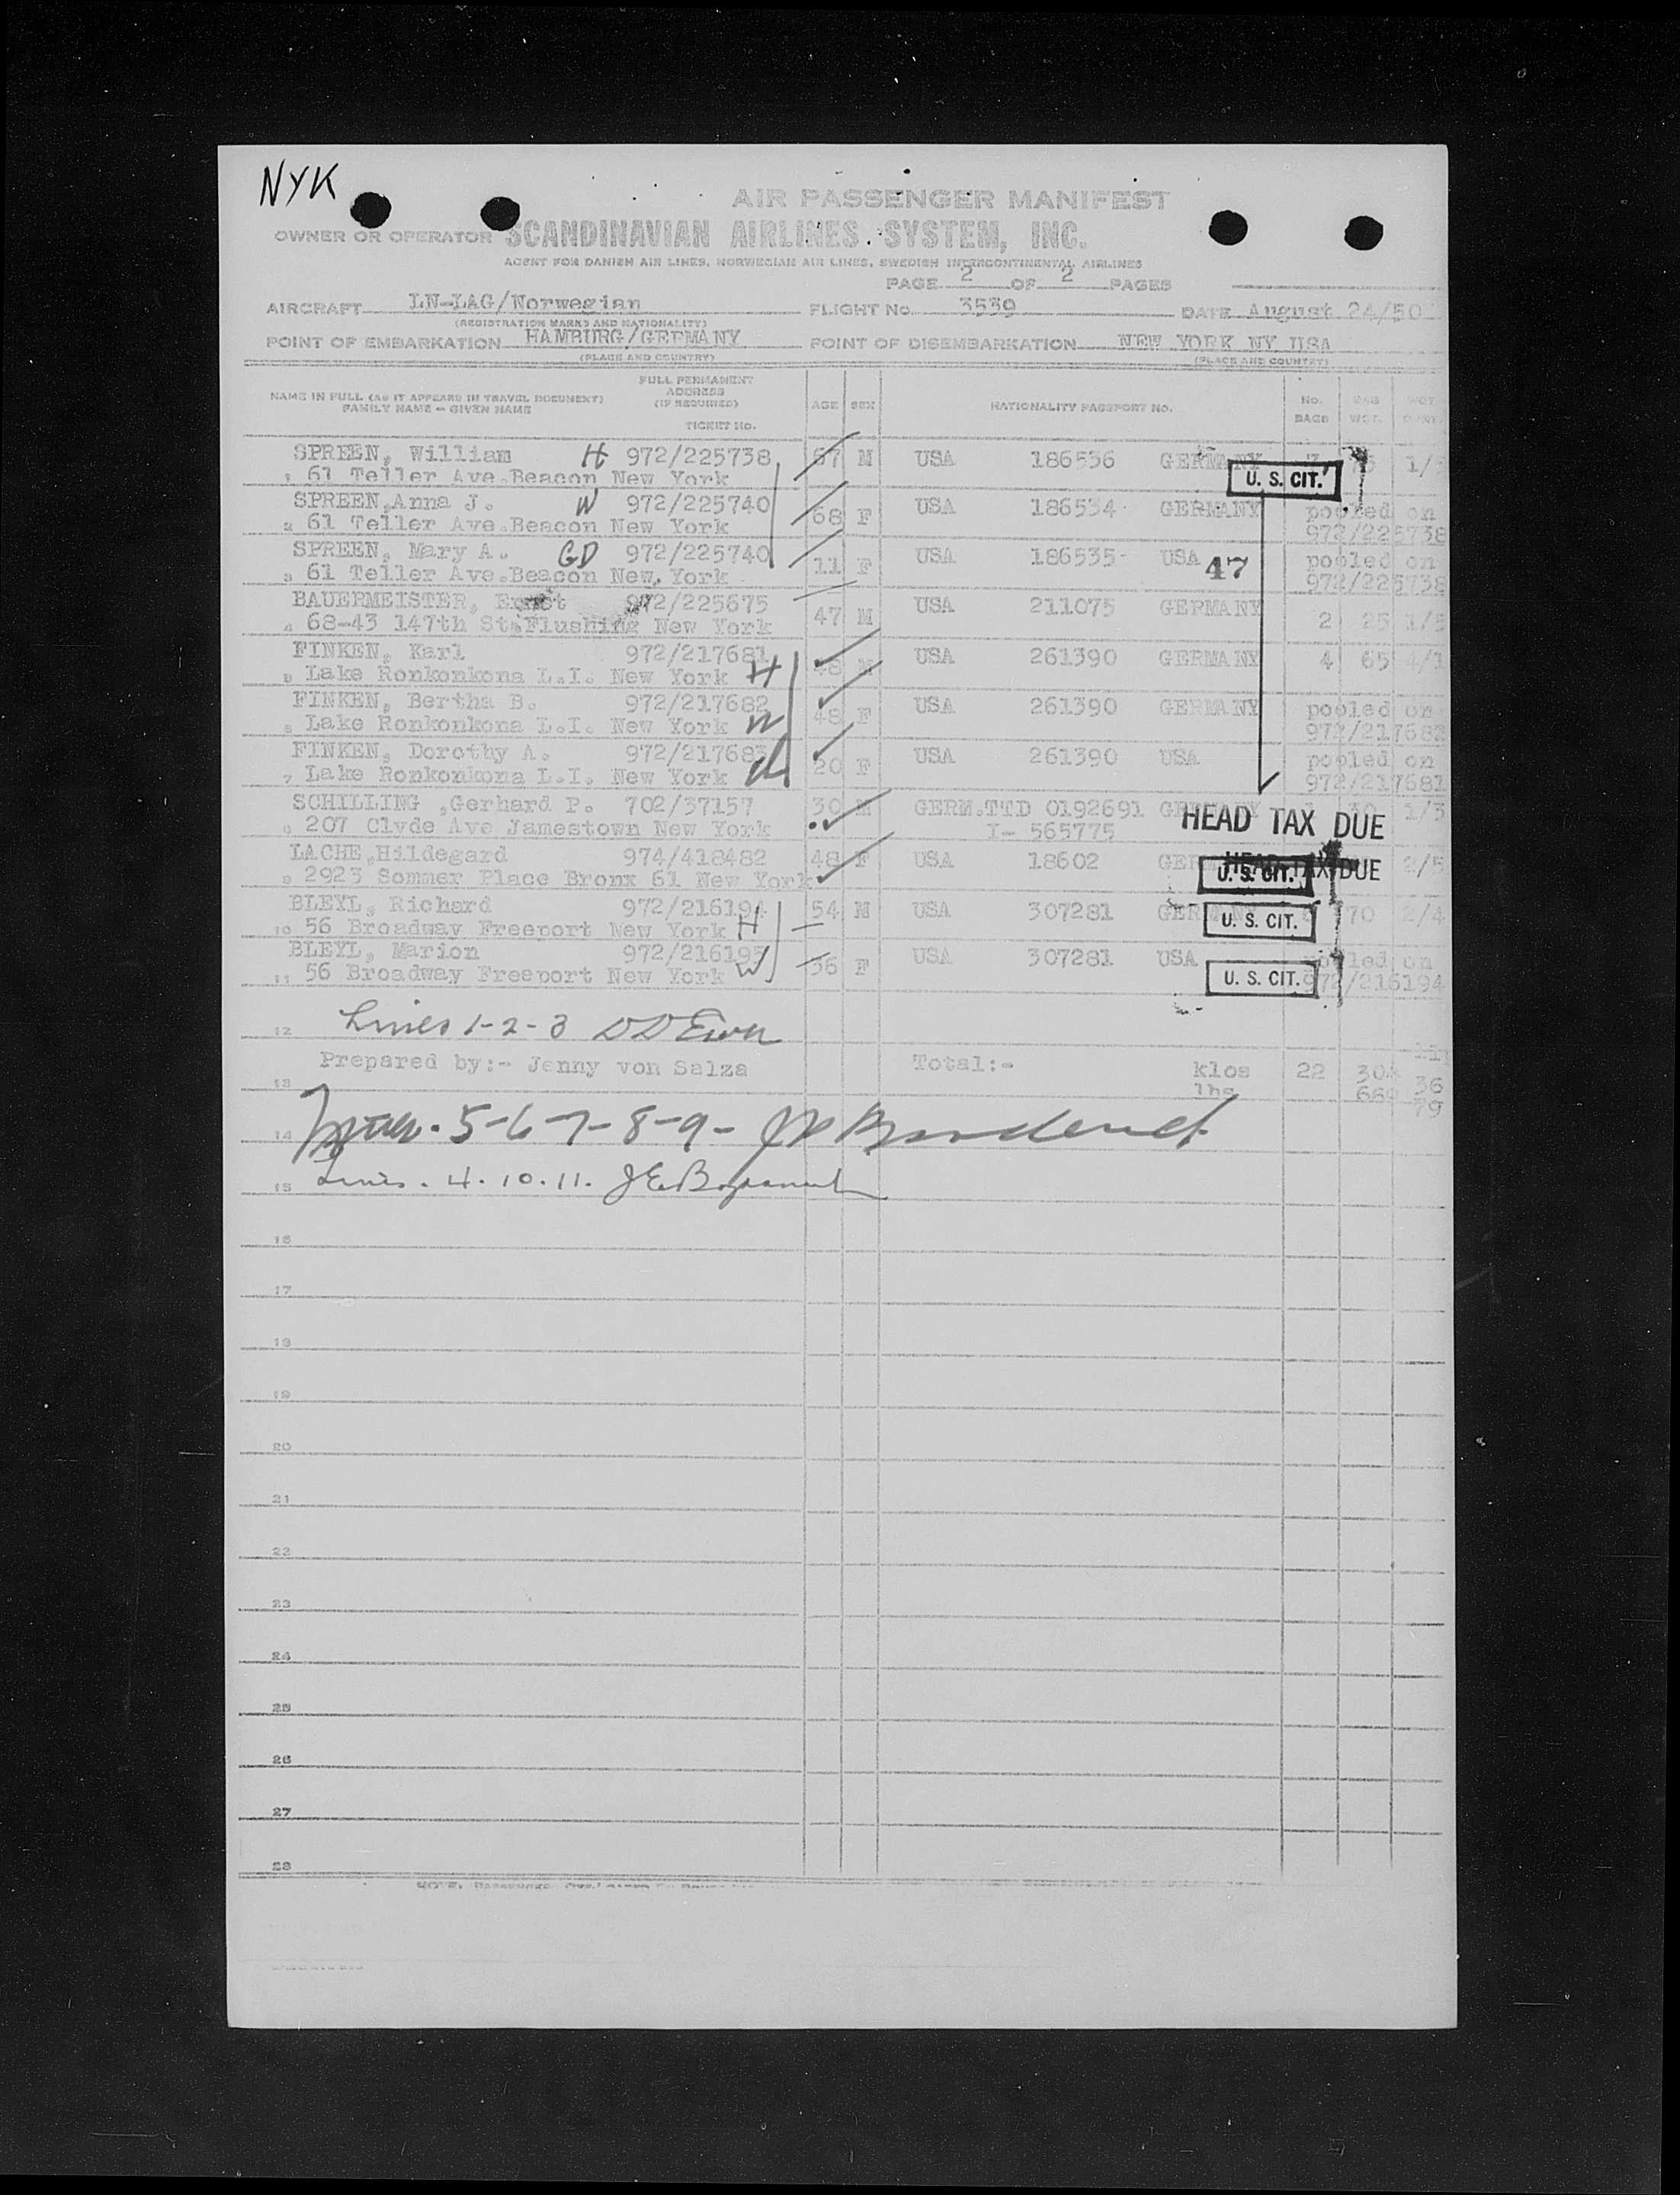 NYK
AIR PASSENGER MANIFEST
OWNER OR OPERATOR SCANDINAVIAN AIRLINES SYSTEM, INC.
AGENT FOR DANISH AIR LINES, NORWEGIAN AIR LINES, SWEDISH INTERCONTINENTAL AIRLINES
PAGE 2 OF 2 PAGES
AIRCRAFT LN-LAG/Norwegian FLIGHT No. 3539 DATE August 24/50
(REGISTRATION MARKS AND NATIONALITY)
POINT OF EMBARKATION HAMBURG/GERMANY POINT OF DISEMBARKATION NEW YORK NY USA
(PLACE AND COUNTRY) (PLACE AND COUNTRY)
NAME IN FULL (AS IT APPEARS IN TRAVEL DOCUMENT) FAMILY NAME - GIVEN NAME FULL PERMANENT ADDRESS (IF REQUIRED) TICKET No. AGE SEX NATIONALITY PASSPORT No. No. BAGS BAG WGT.
SPREEN, William H 972/225738 67 M USA 186536 GERMANY 1/
1 61 Teller Ave.Beacon New York U. S. CIT.
SPREEN,Anna J. W 972/225740 68 F USA 186534 GERMANY pooled on
2 61 Teller Ave.Beacon New York 972/225738
SPREEN, Mary A. GD 972/225740 11 F USA 186535- USA 47 pooled on
3 61 Teller Ave.Beacon New York 972/225738
BAUERMEISTER, Ernst 972/225675 47 M USA 211075 GERMANY 2 25 1/5
4 68-43 147th St.Flushing New York
FINKEN, Karl 972/217681 48 M USA 261390 GERMANY 4 65 4/1
5 Lake Ronkonkona L.I. New York H
FINKEN, Bertha B. 972/217682 48 F USA 261390 GERMANY pooled on
6 Lake Ronkonkona L.I. New York W 972/217682
FINKEN, Dorothy A. 972/217683 20 F USA 261390 USA pooled on
7 Lake Ronkonkona L.I. New York d 972/217681
SCHILLING ,Gerhard P. 702/37157 30 M GERM.TTD 0192691 GERMANY 30 1/3
8 207 Clyde Ave Jamestown New York I- 565775 HEAD TAX DUE
LACHE,Hildegard 974/418482 48 F USA 18602 HEAD TAX DUE 2/5
9 2923 Sommer Place Bronx 61 New York U. S. CIT.
BLEYL, Richard 972/216194 54 M USA 307281 GERMANY 70 2/4
10 56 Broadway Freeport New York H U. S. CIT.
BLEYL, Marion 972/216195 36 F USA 307281 USA pooled on
11 56 Broadway Freeport New York W U. S. CIT. 972/216194
12 Lines 1-2-3
Prepared by:- Jenny von Salza Total:- klos 22 304 36
13 lbs 669 79
14 5-6-7-8-9-
15 Lines. 4.10.11.
16
17
18
19
20
21
22
23
24
25
26
27
28